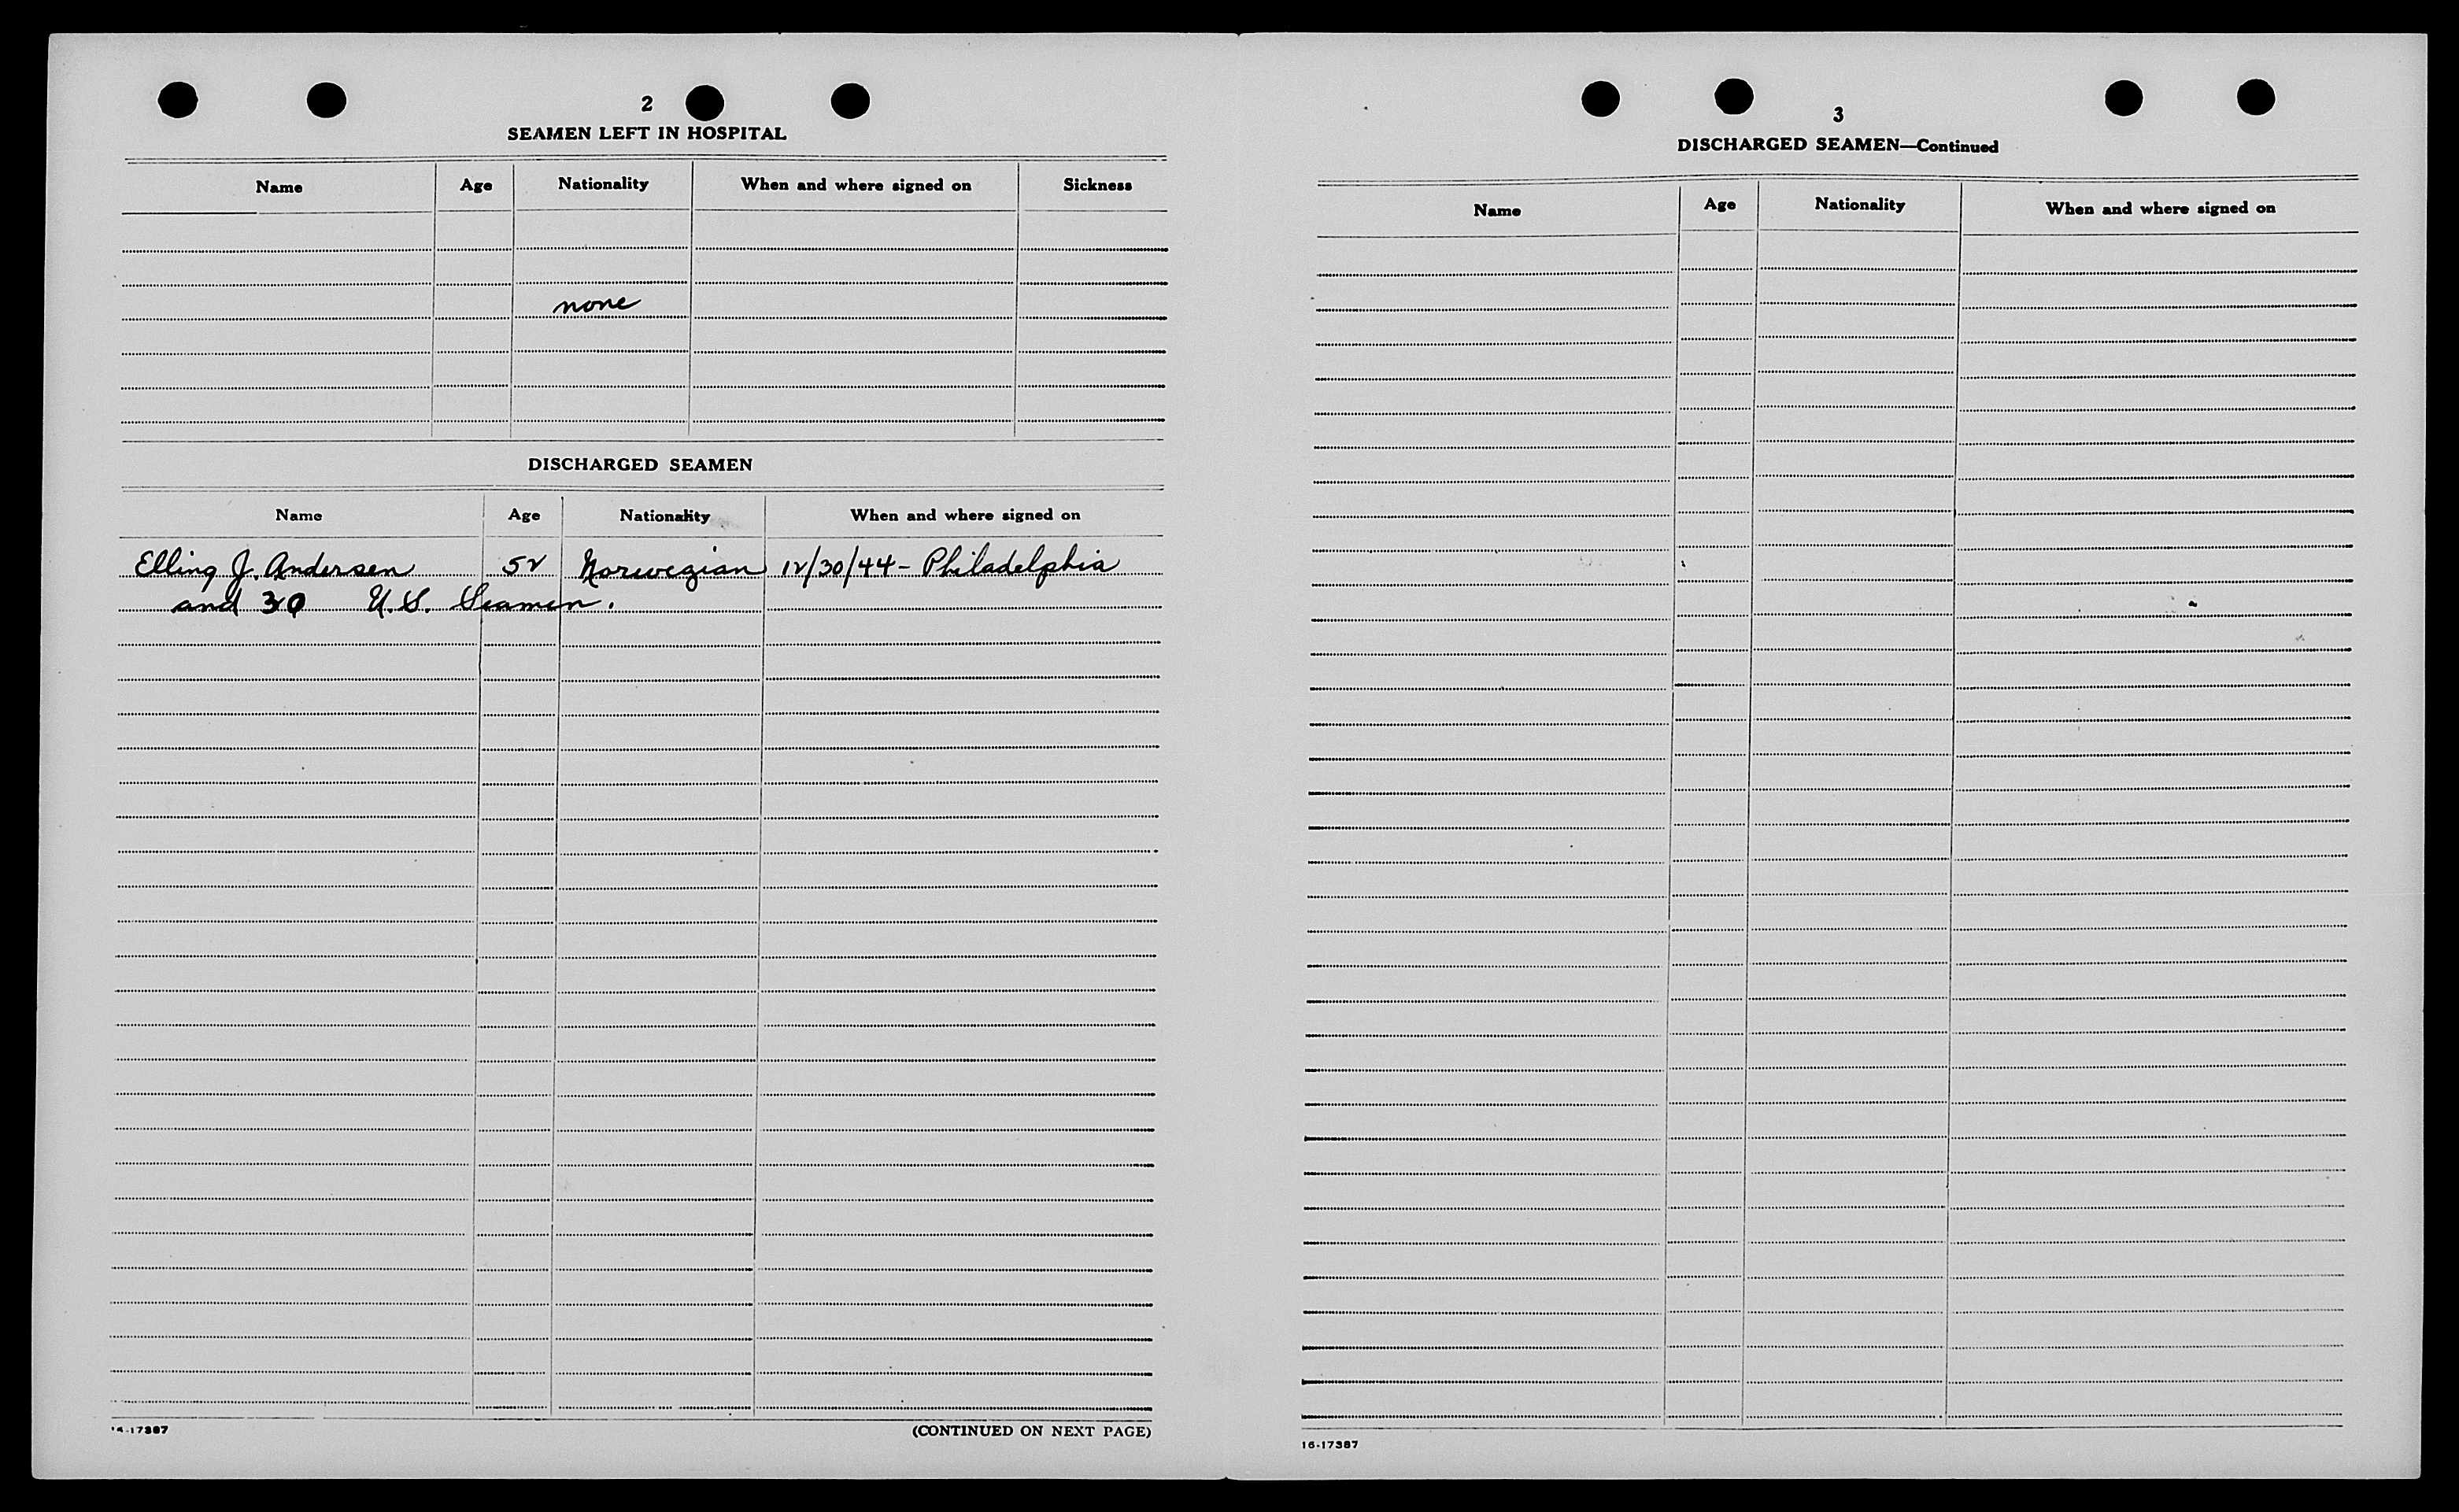 2
SEAMEN LEFT IN HOSPITAL
Name Age Nationality When and where signed on Sickness
none
DISCHARGED SEAMEN
Name Age Nationality When and where signed on
Elling J. Andersen 52 Norwegian 12/30/44 - Philadelphia
and 30 U.S. Seamen.
16-17387 (CONTINUED ON NEXT PAGE)
3
DISCHARGED SEAMEN—Continued
Name Age Nationality When and where signed on
16-17387